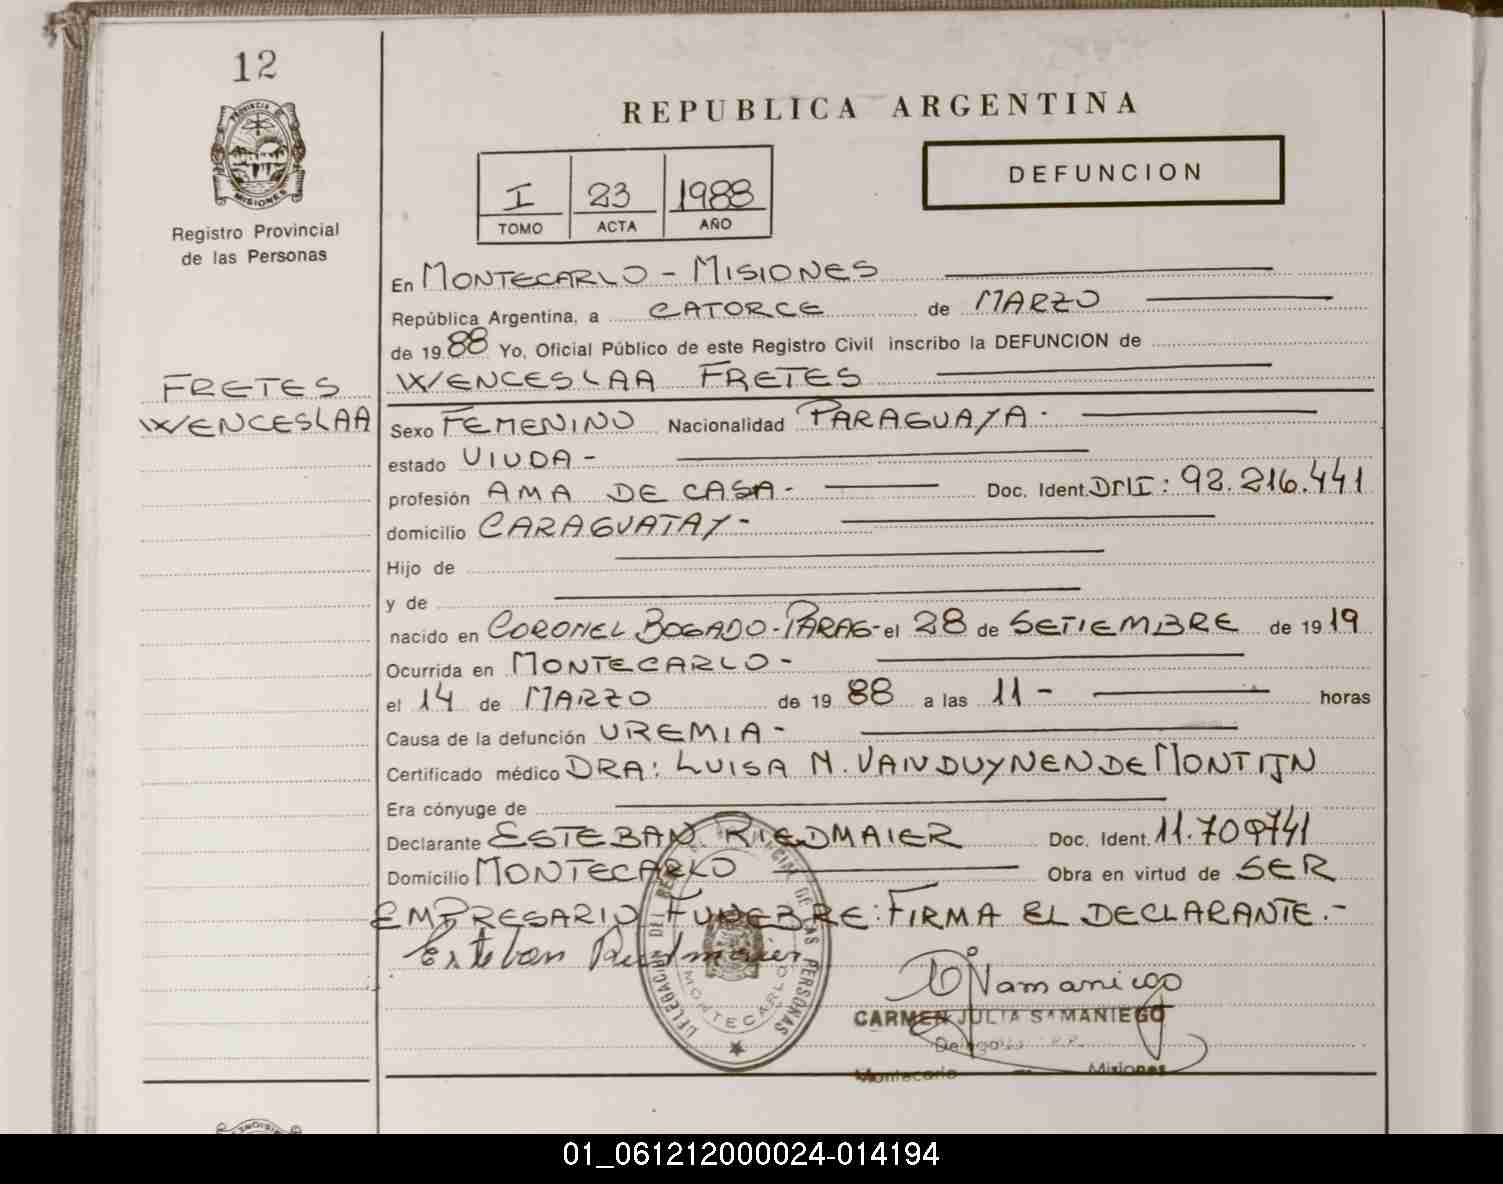 12
PROVINCIA DE
MISIONES
Registro Provincial
de las Personas
FRETES
WENCESLAA
REPUBLICA ARGENTINA
DEFUNCION
I 23 1988
TOMO ACTA AÑO
En MONTECARLO - MISIONES
República Argentina, a CATORCE de MARZO
de 19 88 Yo, Oficial Público de este Registro Civil inscribo la DEFUNCION de
WENCESLAA FRETES
Sexo FEMENINO Nacionalidad PARAGUAYA.
estado VIUDA -
profesión AMA DE CASA - Doc. Ident. DNI: 92.216.441
domicilio CARAGUATAY -
Hijo de
y de
nacido en CORONEL BOGADO - PARAG - el 28 de SETIEMBRE de 19 19
Ocurrida en MONTECARLO -
el 14 de MARZO de 19 88 a las 11 - horas
Causa de la defunción UREMIA -
Certificado médico DRA: LUISA M. VANDUYNEN DE MONTIJN
Era cónyuge de
Declarante ESTEBAN RIEDMAIER Doc. Ident. 11.709741
Domicilio MONTECARLO Obra en virtud de SER
EMPRESARIO FUNEBRE: FIRMA EL DECLARANTE.-
Esteban Riedmaier
DELEGACION DEL REGISTRO PROVINCIAL DE LAS PERSONAS
MONTECARLO
Samaniego
CARMEN JULIA SAMANIEGO
Delegada R.P.
Montecarlo - Misiones
01_061212000024-014194